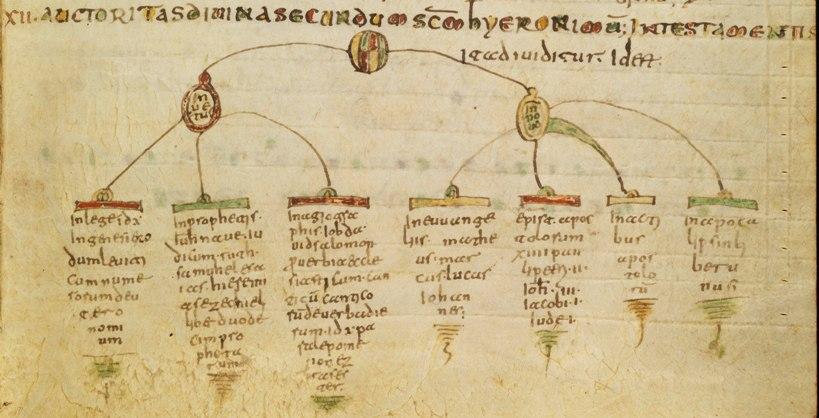 XII. AUCTORITAS DIVINA SECUNDUM SCM hYERONIMU; IN TESTAMENTIS
ita dividitur. Idest.
in
ue
tu
in
no
uo
In lege ida
In genesi exo
dum leuiti
cum nume
rosum deu
tero
nomi
um
In prophetis.
iudicum. ruth.
samuhel esa
ias hieremi
as ezechiel
libe duode
cim pro
pheta
rum
In agiogra
phis. Iob da
uid salomon
prouerbia eccle
siasti cum can
ticu cantico
sum. id e pa
ralepome
non. ez
ras es
ter.
In euuange
liis. mathe
us. mar
cus lucas
Iohan
nes.
Epist. apos
tolorum
XIIII pau
li petri. II.
Ioh. III.
Iacobi. I.
Iude. I.
In acti
bus
apos
tolo
ru
In apoca
lipsin li
ber u
nus